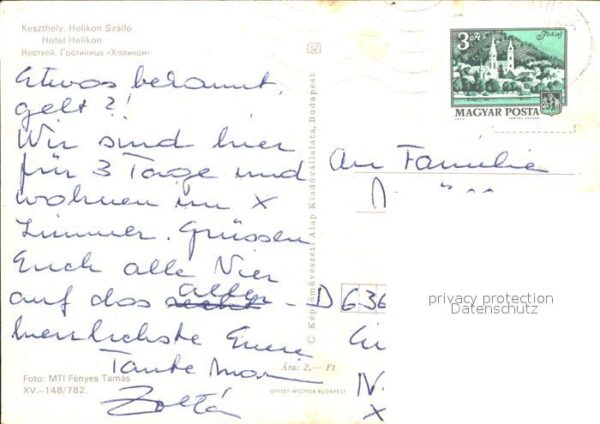 Keszthely. Helikon Szálló
Hotel Helikon
Кестхей. Гостиница «Хеликон»
Etwas bekannt,
gelt?!
Wir sind hier
für 3 Tage und
wohnen im X
Zimmer. Grüssen
Euch alle Vier
auf das aller-
herrlichste Euere
Tante
Zoltán
Foto: MTI Fényes Tamás
XV.-148/782.
© Képzőművészeti Alap Kiadóvállalata, Budapest
Ára: 2,— Ft
OFFSET-NYOMDA, BUDAPEST
3 Ft Tokaj
MAGYAR POSTA
An Familie
D 636
privacy protection
Datenschutz
N.
X